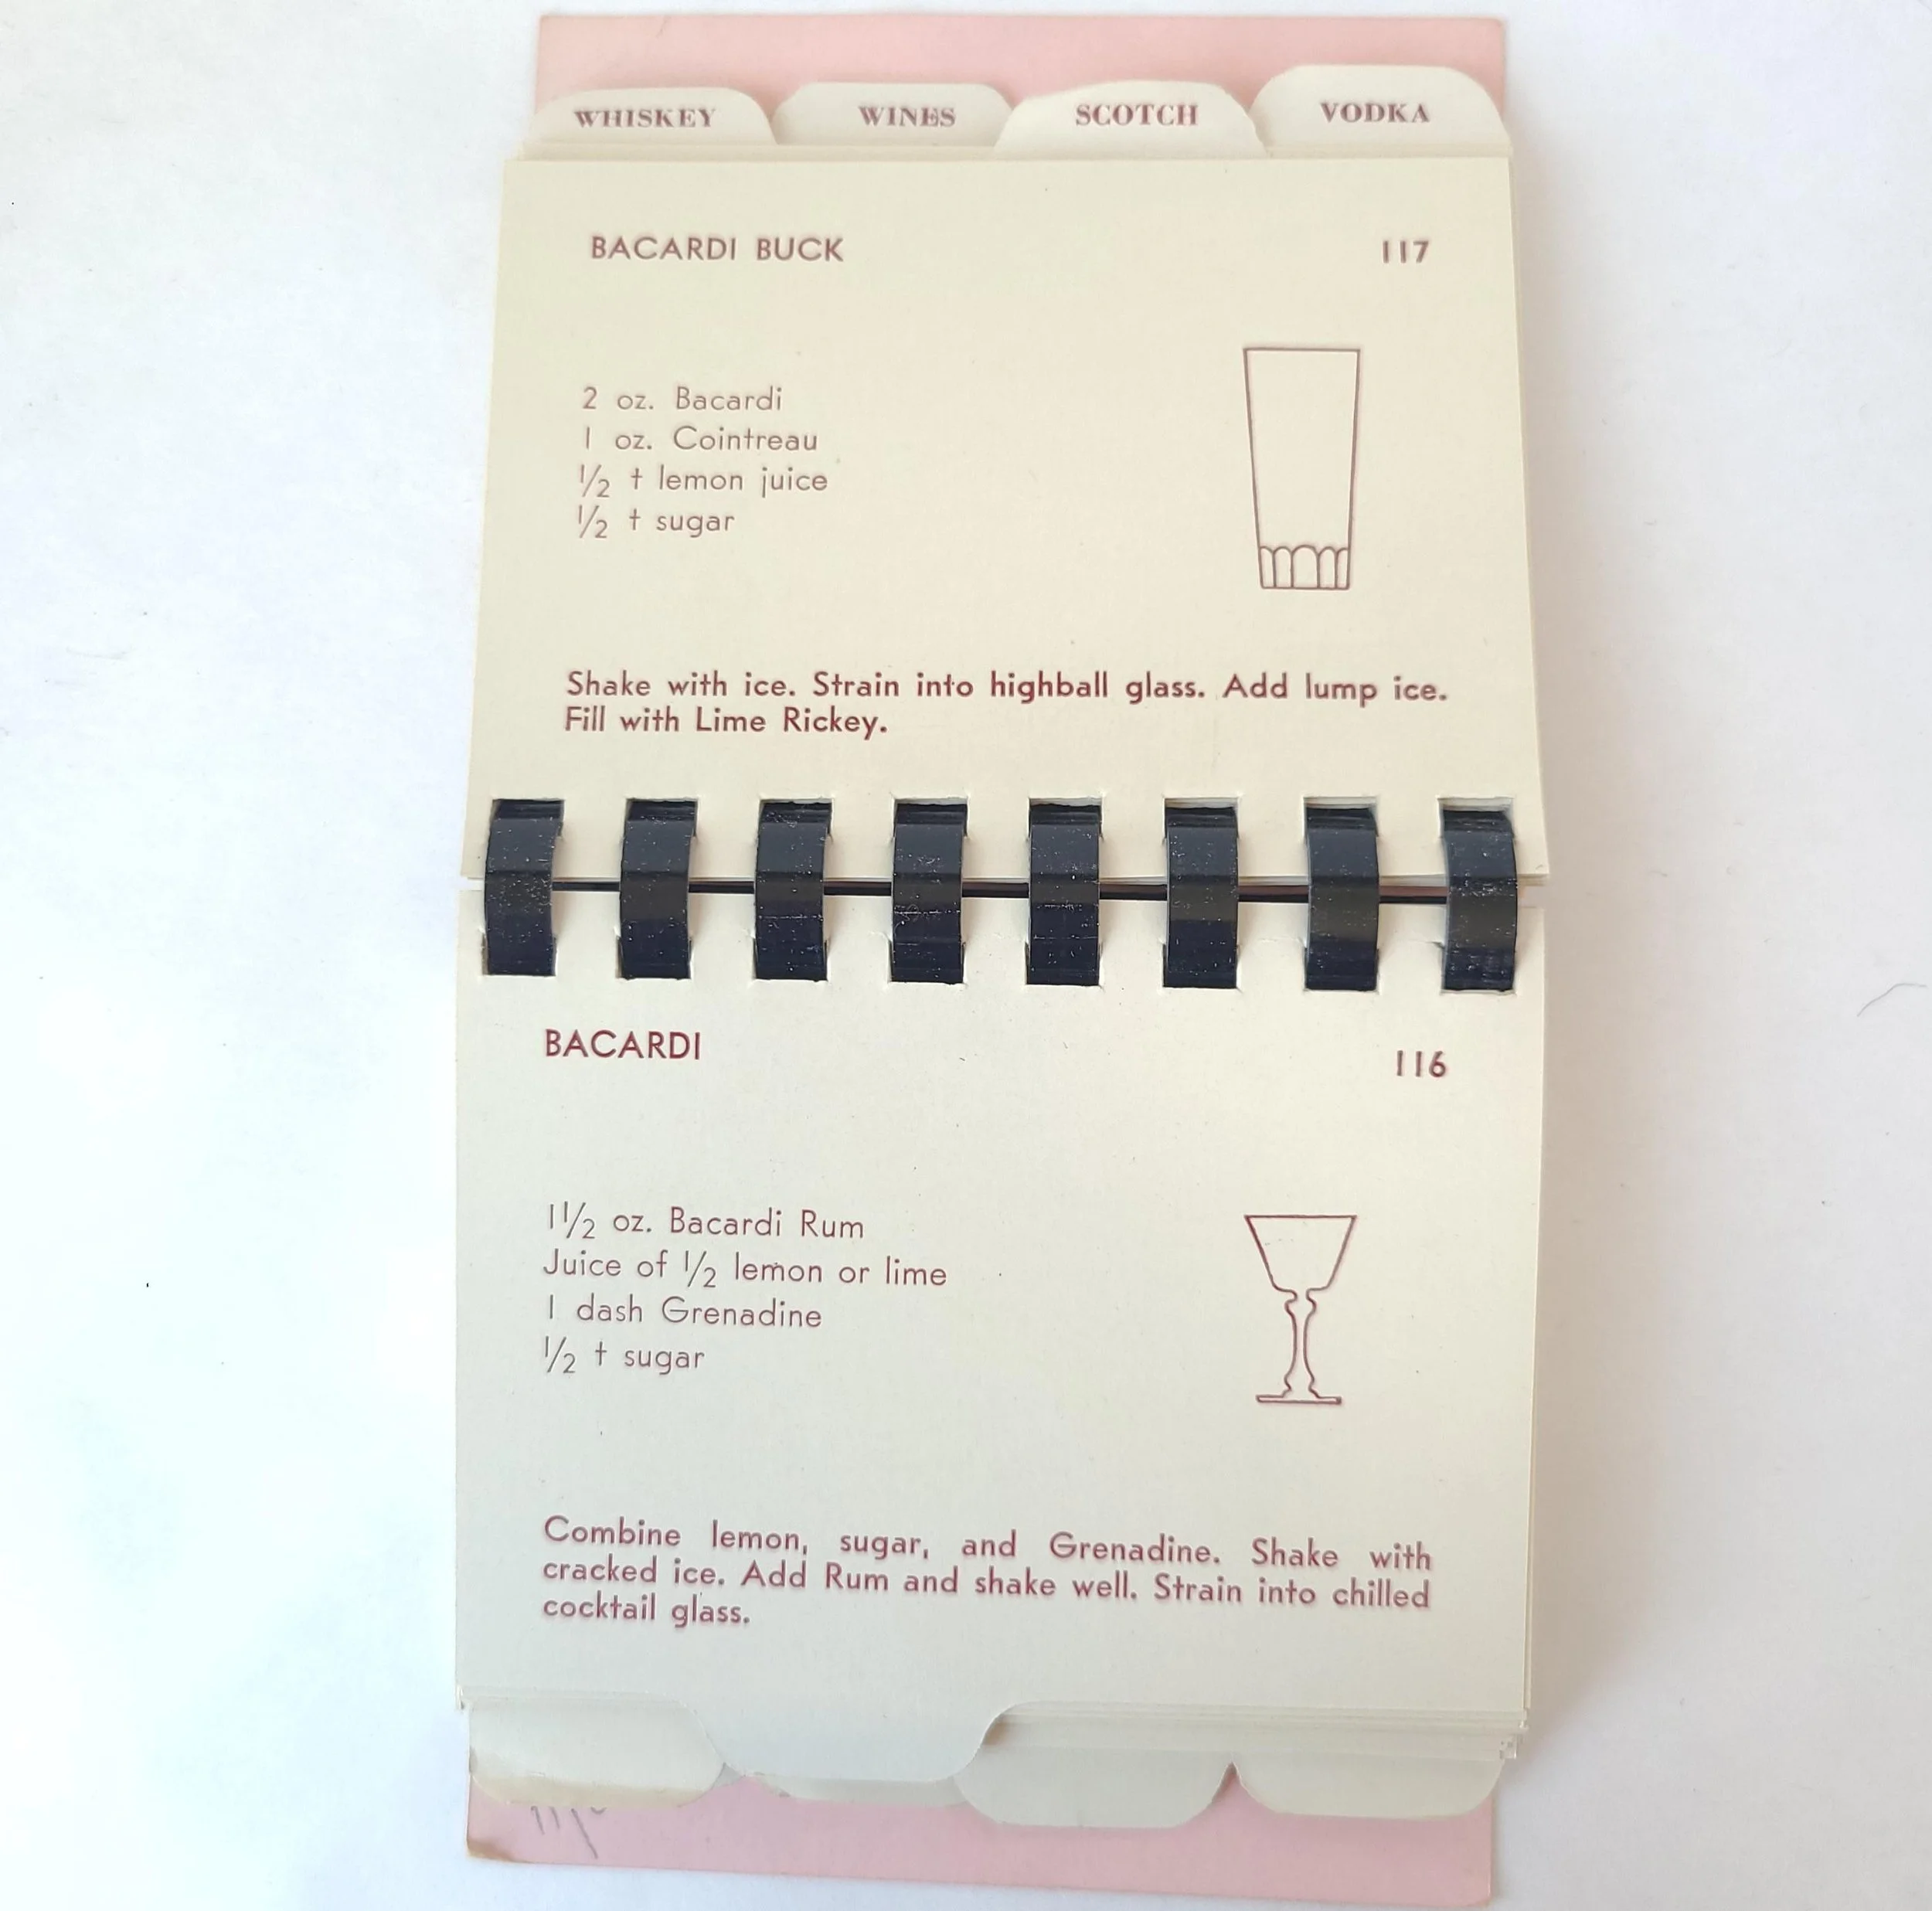 WHISKEY WINES SCOTCH VODKA
BACARDI BUCK 117
2 oz. Bacardi
1 oz. Cointreau
½ t lemon juice
½ t sugar
Shake with ice. Strain into highball glass. Add lump ice.
Fill with Lime Rickey.
BACARDI 116
1½ oz. Bacardi Rum
Juice of ½ lemon or lime
1 dash Grenadine
½ t sugar
Combine lemon, sugar, and Grenadine. Shake with
cracked ice. Add Rum and shake well. Strain into chilled
cocktail glass.